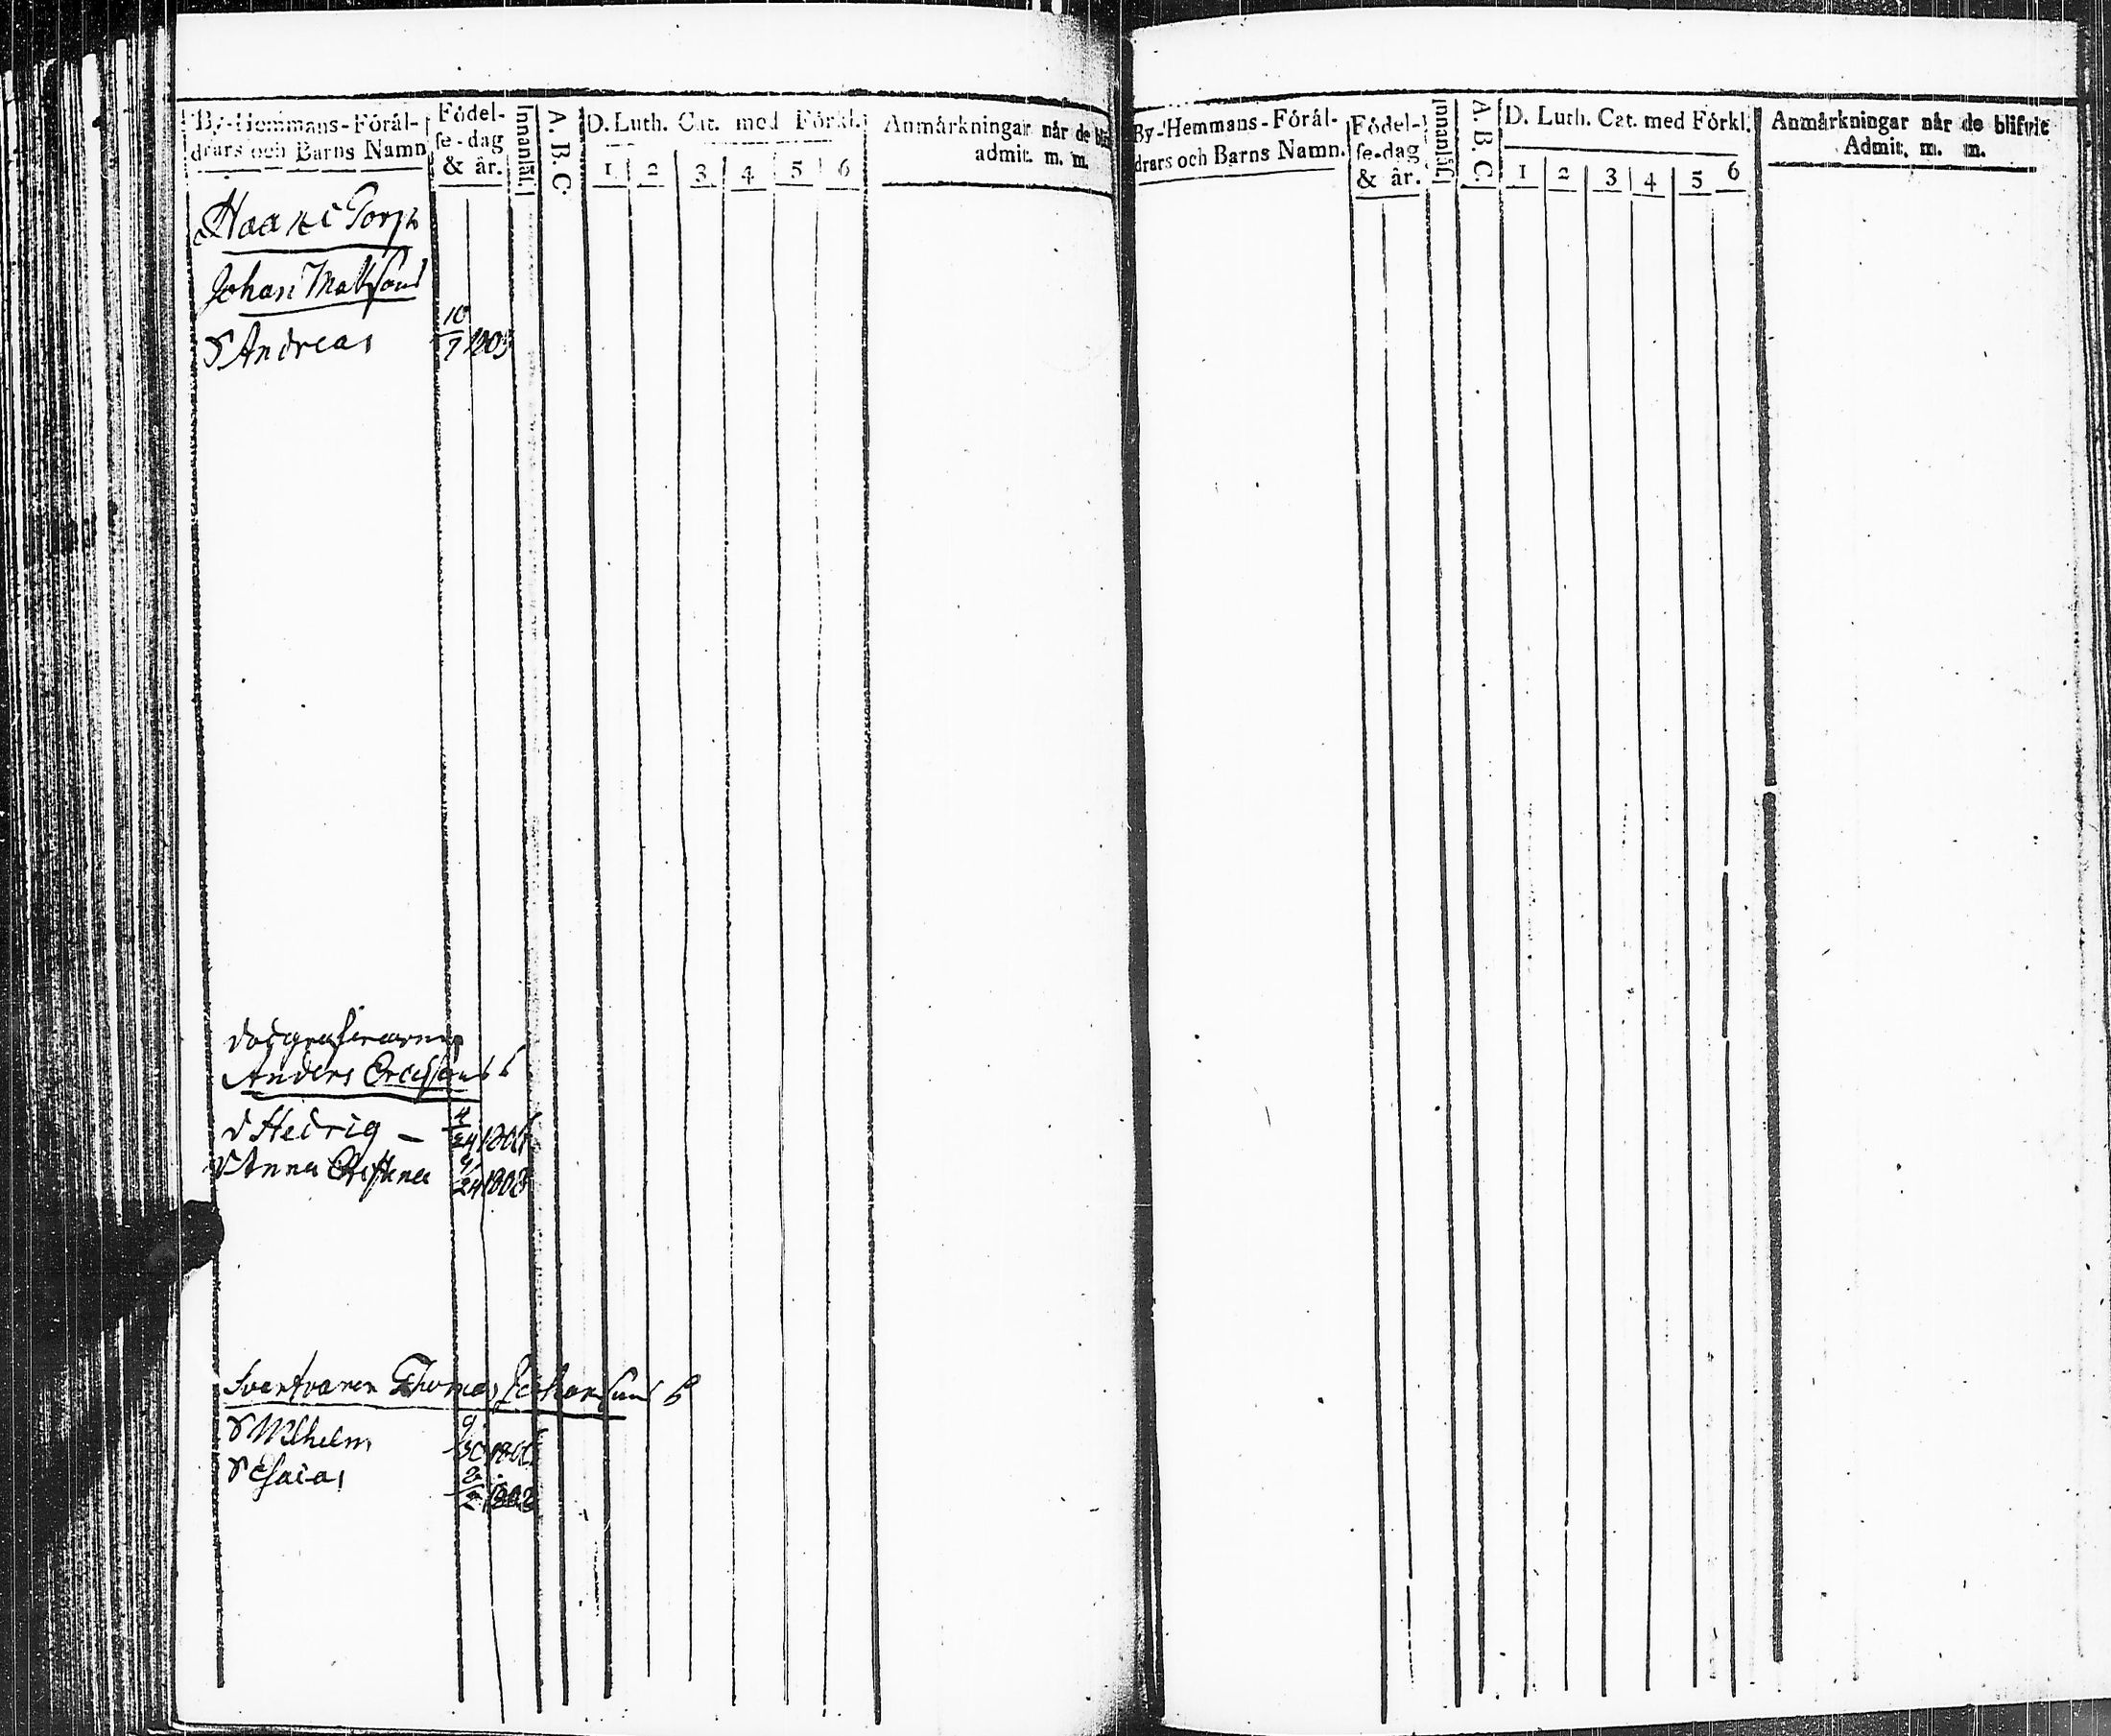 By-Hemmans-Förål-
drars och Barns Namn
Födel-
se-dag
& år.
Innanläs.
A. B. C.
D. Luth. Cat. med Förkl.
1 2 3 4 5 6
Anmårkningar når de blif
admit. m. m.
Johan Matssons
S Andreas 10/7 1803
Anders Ericssons b
d Hedvig - 4/24 1806
D Anna Christina 4/24 1808
Thomas Johanssons b
S Wilhelm 9/30 1806
S Esaias 2/2 1808
By-Hemmans-Förål-
drars och Barns Namn.
Födel-
se-dag
& år.
Innanläs.
A. B. C.
D. Luth. Cat. med Förkl.
1 2 3 4 5 6
Anmårkningar når de blifvit
Admit. m. m.